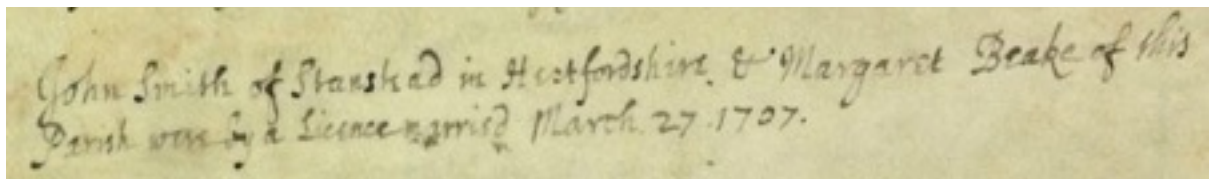 John Smith of Stanstead in Hertfordshire & Margaret Beake of this
Parish were by a Licence marrisd March 27 1707.